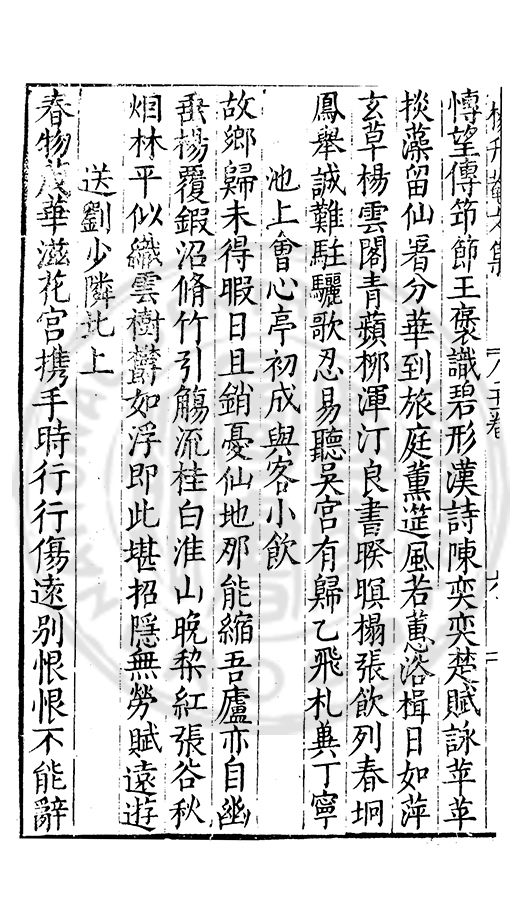 愽望傳笻節王褒識碧形漢詩陳奕奕楚賦詠苹苹
掞藻留仙署分華到旅庭薰莚風若蕙浴楫日如萍
玄草楊雲閣青蘋柳渾汀良書暌暝榻張飲列春坰
鳳舉誠難駐驪歌忍易聽吳宮有歸乙飛札兾丁寧
池上會心亭初成與客小飲
故鄉歸未得暇日且銷憂仙地那能縮吾廬亦自幽
垂楊覆鍜沼脩竹引觴流桂白淮山晚棃紅張谷秋
烟林平似織雲樹欝如浮即此堪招隱無勞賦遠遊
送劉少隣北上
春物茂華滋花宮携手時行行傷遠別恨恨不能辭